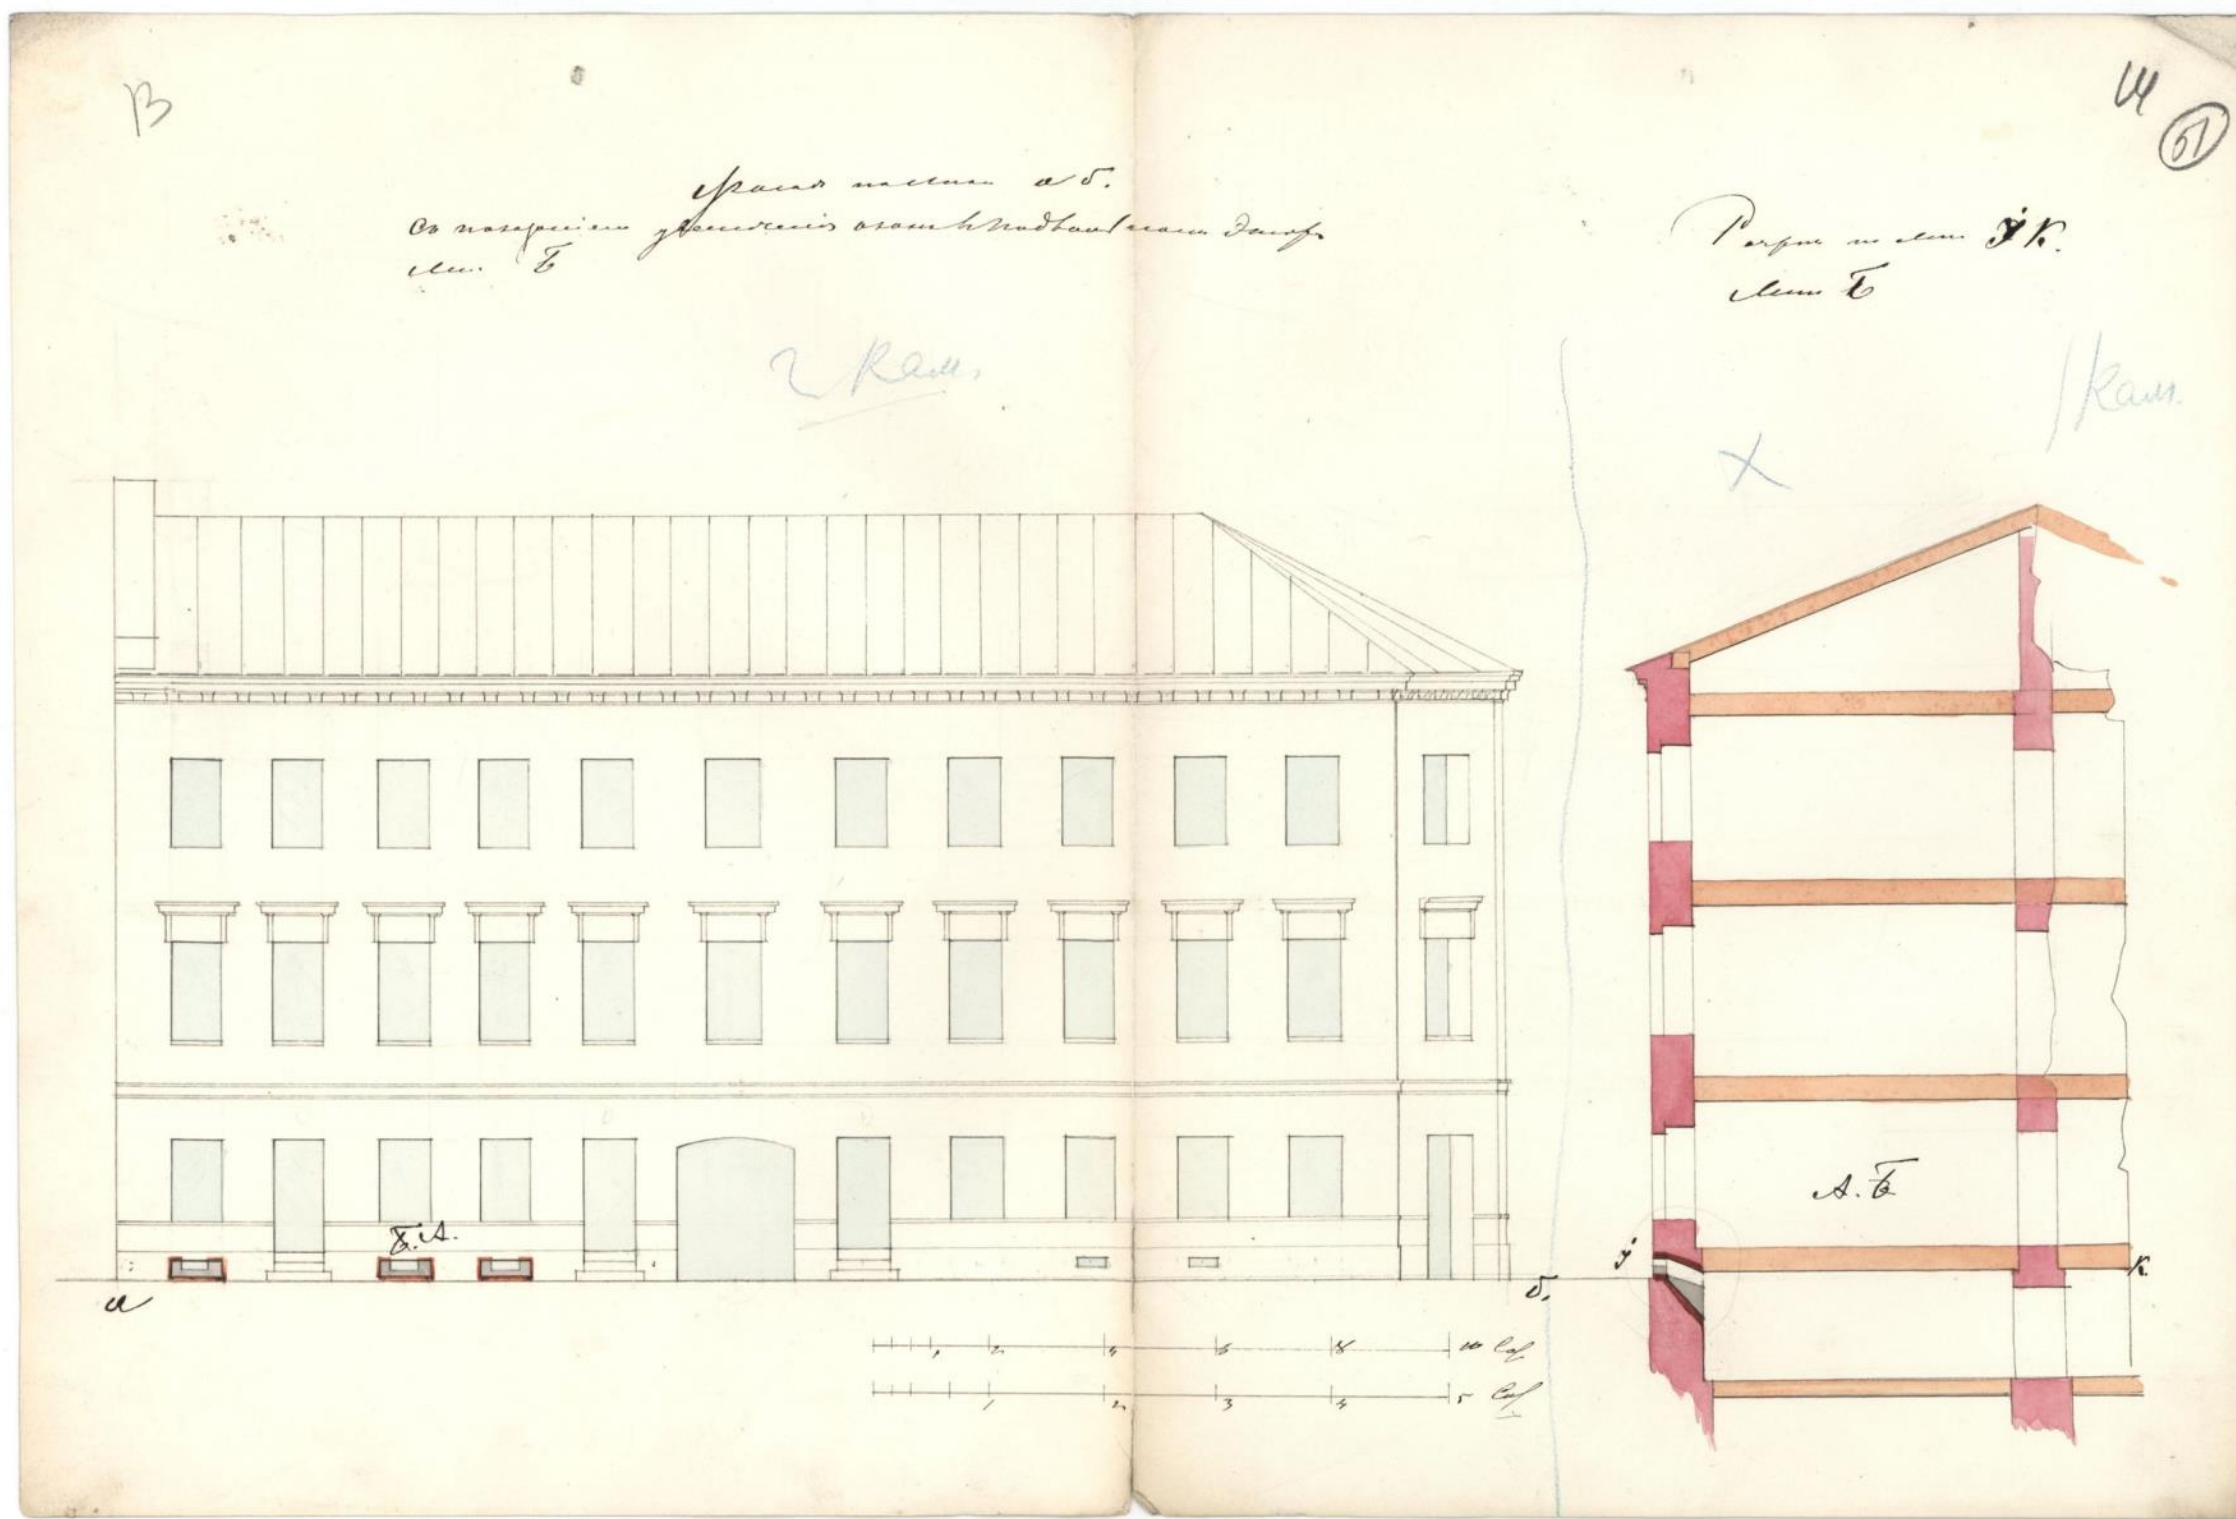 В
51
Фасадъ по линiи а б.
съ показанiемъ уширенiя оконъ въ подвальномъ этажѣ
Лит. Б
Разрѣзъ по линiи I К.
Лит. Б
Кам.
Кам.
А. Б
Б. А.
I
К.
а
б.
1 2 4 6 8 10 Саж
1 2 3 4 5 Саж